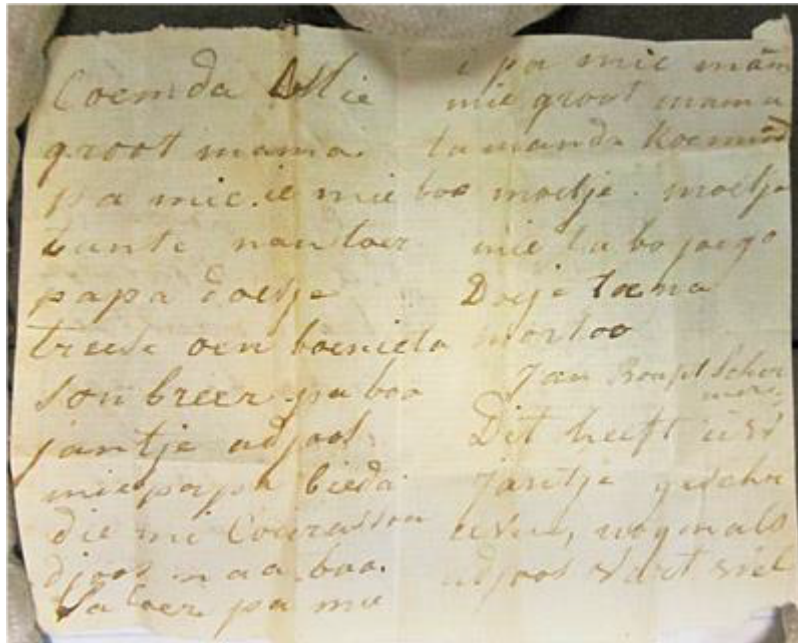 Coemda Mie
groot mama
pa mie. ie mie boo
tante nan toer
papa doesje
treese oen boenieta
sonbreer pa boo
jantje adjoos
mie papa bieda
die mi Courasson
djoos naa boo.
Sa toer pa mie
i pa mie mam
mie groot mama
ta manda koemmd
moetje. moetje
mie ta bo joego
Doeje toena
mortoo
Jan Boupt Schri
Dit heeft uw
jantje geschr
even, nogmals
adjoos vart wel